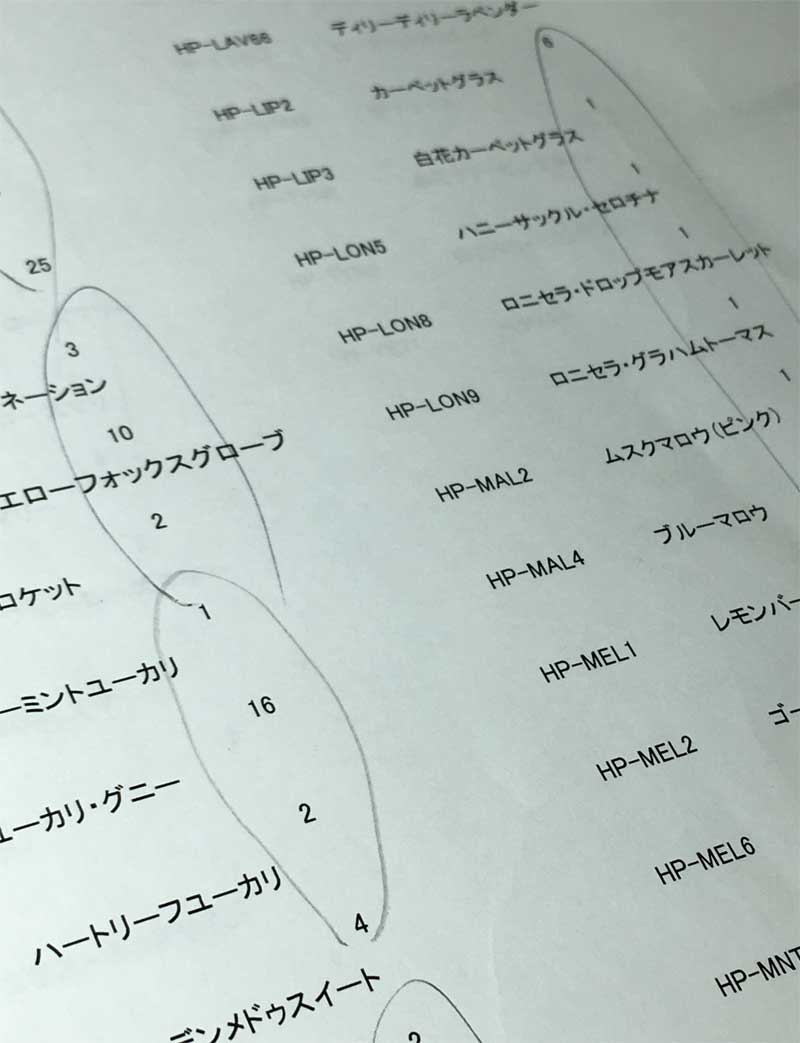 25
3
ネーション
10
エローフォックスグローブ
2
ロケット
1
ーミントユーカリ
16
ユーカリ・グニー
2
ハートリーフユーカリ
4
デンメドゥスイート
2
HP-LAV66 ティリーティリーラベンダー
6
HP-LIP2 カーペットグラス
1
HP-LIP3 白花カーペットグラス
1
HP-LON5 ハニーサックル・セロチナ
1
HP-LON8 ロニセラ・ドロップモアスカーレット
1
HP-LON9 ロニセラ・グラハムトーマス
1
HP-MAL2 ムスクマロウ(ピンク)
HP-MAL4 ブルーマロウ
HP-MEL1 レモンバー
HP-MEL2 ゴー
HP-MEL6
HP-MNT